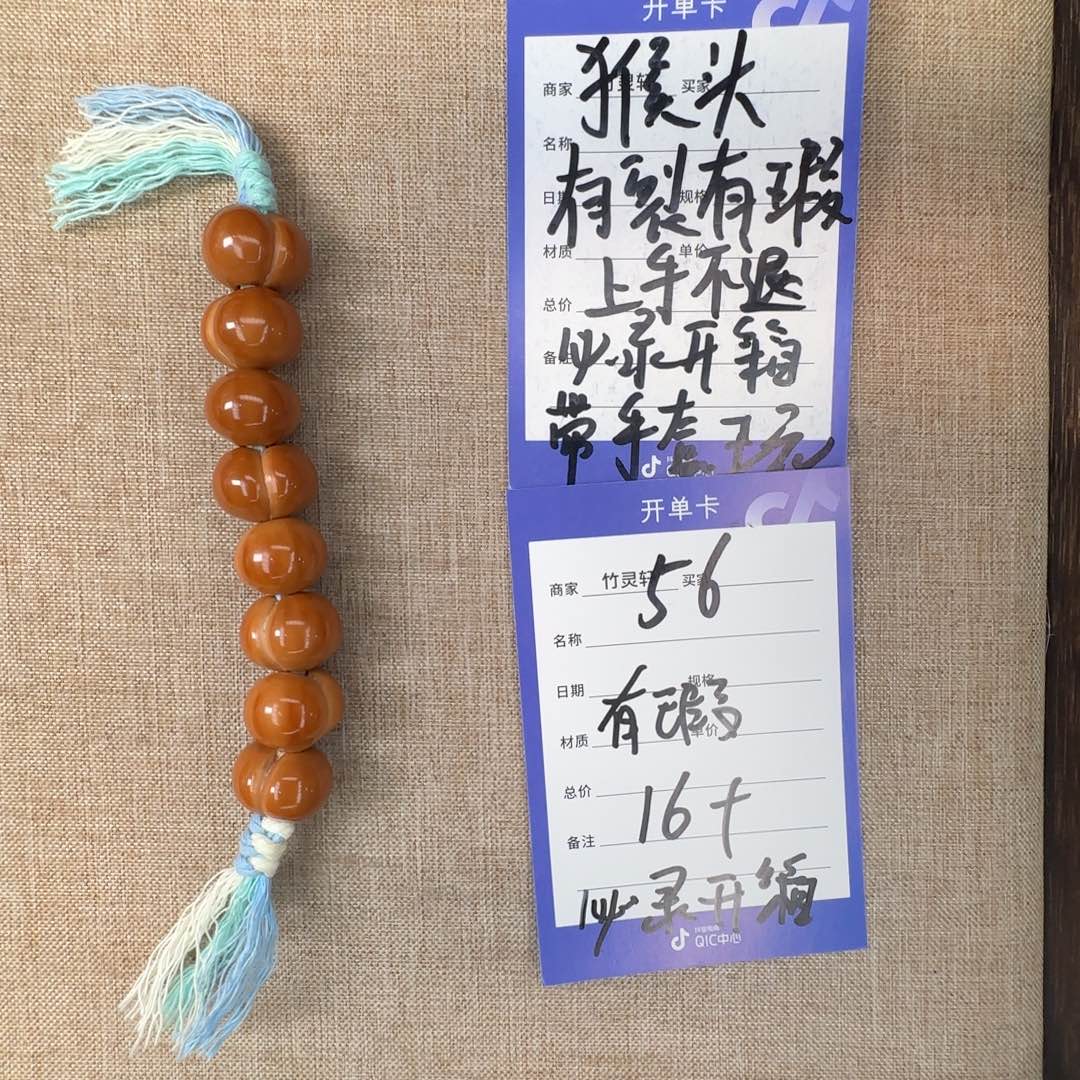 开单卡
猴头
商家 竹灵轩 买家
名称
有裂有瑕
日期 规格
材质 单价
上手不退
总价
必录开箱
备注
带手套玩
开单卡
56
商家 竹灵轩 买家
名称
日期 规格
有瑕
材质 单价
总价
16+
备注
必录开箱
抖音电商
QIC中心